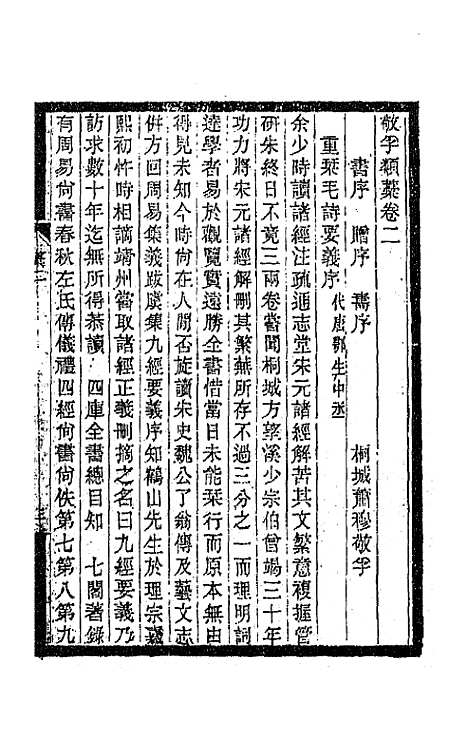 敬孚類藁卷二
書序　贈序　壽序　　桐城蕭穆敬孚
重栞毛詩要義序 代唐鄂生中丞
余少時讀諸經注疏通志堂宋元諸經解苦其文繁意複握管
研朱終日不竟三兩卷嘗聞桐城方望溪少宗伯曾竭三十年
功力將宋元諸經解刪其繁蕪所存不過三分之一而理明詞
達學者易於觀覽實遠勝全書惜當日未能栞行而原本無由
得見未知今尚在人閒否旋讀朱史魏公了翁傳及藝文志
併方回周易集義跋虞集九經要義序知鶴山先生於理宗嘉
熙初忤時相謫靖州嘗取諸經正義刪摘之名曰九經要義乃
訪求數十年迄無所得恭讀　四庫全書總目知　七閣著錄
有周易尚書春秋左氏傳儀禮四經尚書尚佚第七第八第九